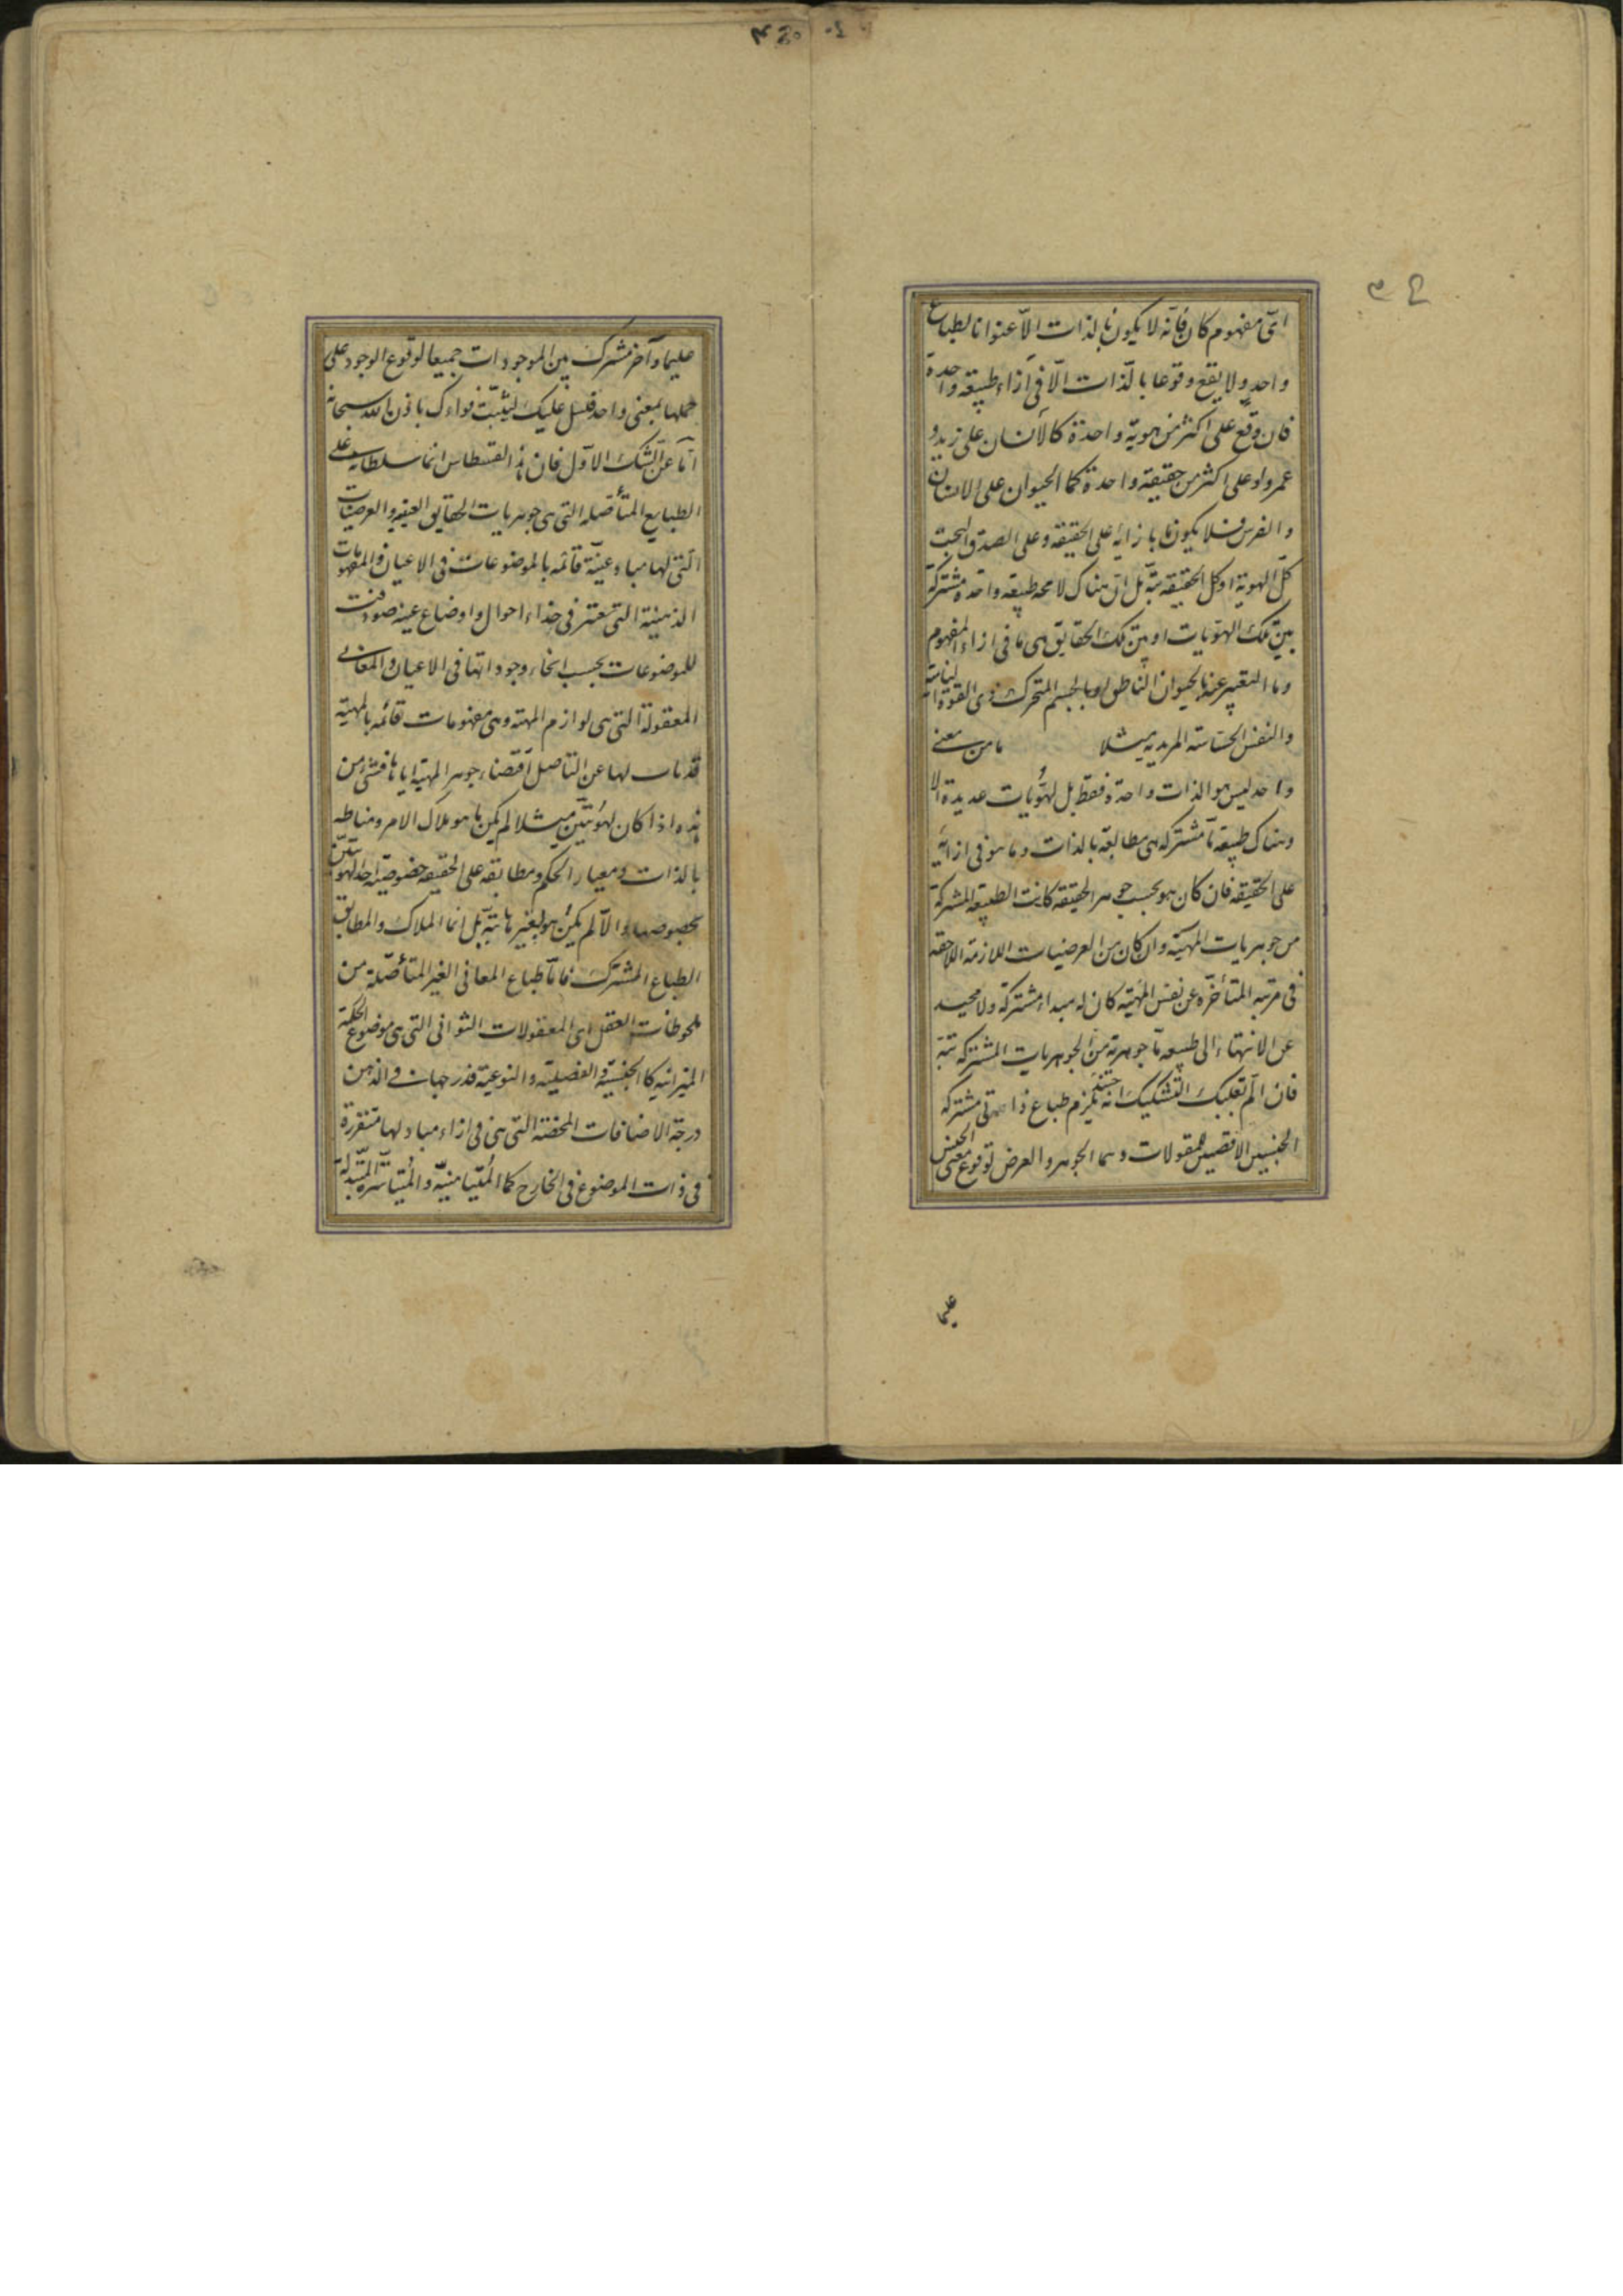 اىّ مفهوم كان فانّه لا يكون بالذات الّا عنوانا لطباع
واحد ولا يقع وقوعا بالذات الّا فى ازاء طبيعة واحدة
فان وقع على اكثر من هوية واحدة كالانسان على زيد و
عمرو او على اكثر من حقيقة واحدة كما الحيوان على الانسان
والفرس فلا يكون ما بازائه على الحقيقه وعلى الصدق البحت
كلّ الهوية او كل الحقيقه بتّه بل انّ هناك لا محه طبيعة واحدة مشتركة
بين تلك الهويّات او بين تلك الحقايق هى ما فى ازاء المفهوم
وما التعبير عنه بالحيوان الناطق او بالجسم المتحرك ذى القوة
والنفس الحساسه المريديه مثلا ما من معنى
واحد ليس هو الذات واحدة فقط بل لهويّات عديدة الا
وهناك طبيعة ما مشتركه هى مطابقه بالذات وما هو فى ازائه
على الحقيقه فان كان هو بحسب جوهر الحقيقه كانت الطبيعة المشتركة
من جوهريات المهيّه وان كان من العرضيات اللازمه اللاحقه
فى مرتبه المتأخّره عن نفس المهيّه كان له مبداء مشتركة ولا محيد
عن الانتهاء الى طبيعه ما جوهرية من الجوهريات المشتركه بتّه
فان الم بقلبك التشكيك انه حينئذ يلزم طباع ذاتى مشتركه
الجنسين الاقصيين للمقولات وهما الجوهر والعرض لوقوع معنى الجنس
عليما
عليما وآخر مشترك بين الموجودات جميعا لوقوع الوجود على
جملها بمعنى واحد فلسل عليك ليثبّت فواءدك باذن الله سبحانه
امّا عن الشك الاوّل فان هذا القسطاس انما سلطانه على
الطبايع المتأصّله التى هى جوهريات الحقايق العينيه والعرضيّات
التى لها مباد عينيّة قائمه بالموضوعات فى الاعيان والمفهومات
الذهنية التى تعتبر فى حذاء احوال واوضاع عينيه صودفت
للموضوعات بحسب انحاء وجوداتها فى الاعيان والمعانى
المعقولة التى هى لوازم المهيّه وهى مفهومات قائمه بالمهيّه
قد ناب لها عن التاصل اقتضاء جوهر المهية اياها فشئ من
هذه اذا كان لهويّتين مثلا لم يكن ما هو ملاك الامر ومناطه
بالذات ومعيار الحكم ومطابقه على الحقيقه خصوصيّه احد الهويّتين
بخصوصها والّا لم يكن هو لغيرها بتّه بل انما الملاك والمطابق
الطباع المشترك فامّا طباع المعانى الغير المتأصّلة من
ملحوظات العقل اى المعقولات الثوانى التى هى موضوع الحكمة
الميزانيه كالجنسيّة والفصليّه والنوعيّة فدرجتها فى الذهن
درجة الاضافات المحضة التى هى فى ازاء مباد لها متقررة
فى ذات الموضوع فى الخارج كما المتيامنيّه والمتياسريّه المتبدلة